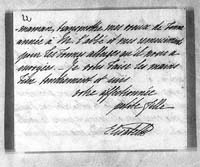 maman, transmettre mes vœux de bonne
année à Mr. l'abbé et mes
pour les bonnes qu'il nous a
envoyées. Je vous baise les mains
bien tendrement et suis
votre affectionnée
petite fille
Elisabeth